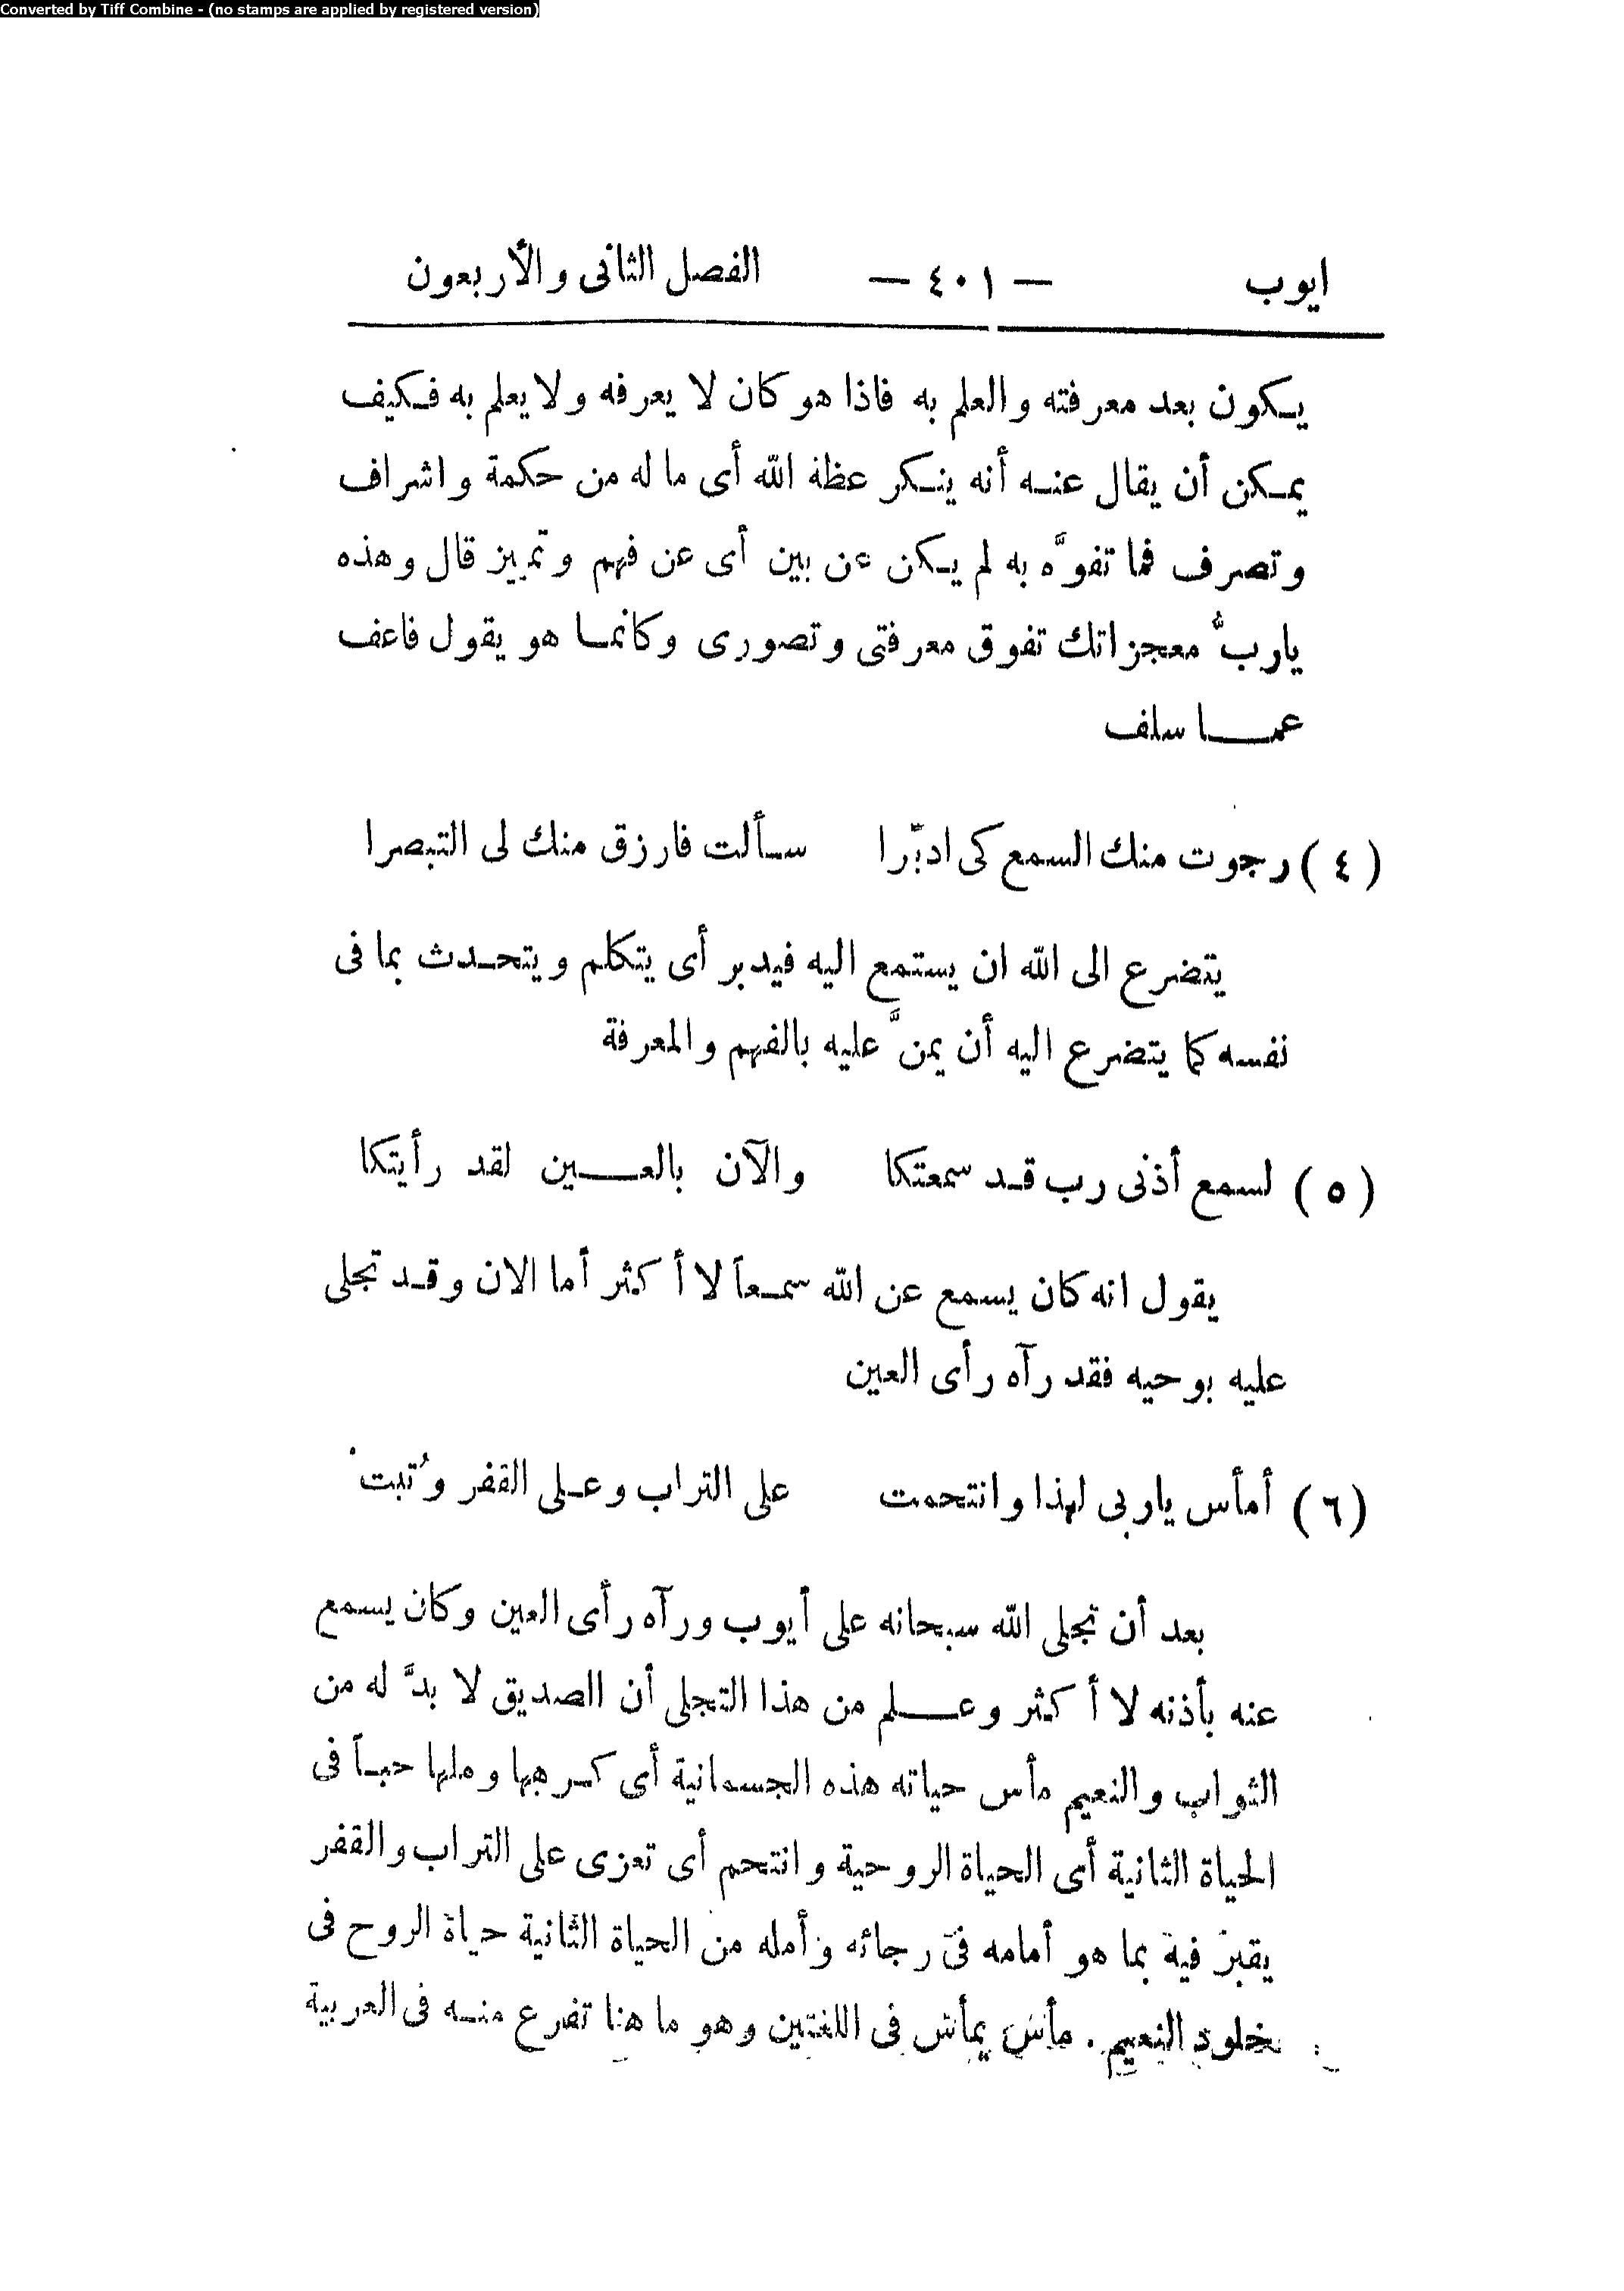 Converted by Tiff Combine - (no stamps are applied by registered version)
ايوب — ٤٠١ — الفصل الثانى والأربعون
يكون بعد معرفته والعلم به فاذا هو كان لا يعرفه ولا يعلم به فكيف
يمكن أن يقال عنه أنه ينكر عظة الله أى ما له من حكمة واشراف
وتصرف فما تفوَّه به لم يكن عن بين أى عن فهم وتمييز قال وهذه
يارب معجزاتك تفوق معرفتى وتصورى وكانما هو يقول فاعف
عما سلف
(٤) رجوت منك السمع كى ادبّرا سألت فارزق منك لى التبصرا
يتضرع الى الله ان يستمع اليه فيدبر أى يتكلم ويتحدث بما فى
نفسه كما يتضرع اليه أن يمنَّ عليه بالفهم والمعرفة
(٥) لسمع أذنى رب قد سمعتكا والآن بالعين لقد رأيتكا
يقول انه كان يسمع عن الله سمعاً لا أكثر أما الان وقد تجلى
عليه بوحيه فقد رآه رأى العين
(٦) أمأس ياربى لهذا وانتحمت على التراب وعلى القفر وُتبت
بعد أن تجلى الله سبحانه على أيوب ورآه رأى العين وكان يسمع
عنه بأذنه لا أكثر وعلم من هذا التجلى أن الصديق لا بدَّ له من
الثواب والنعيم مأس حياته هذه الجسمانية أى كرهها وملها حباً فى
الحياة الثانية أى الحياة الروحية وانتحم أى تعزى على التراب والقفر
يقبر فيه بما هو أمامه فى رجائه وأمله من الحياة الثانية حياة الروح فى
خلود النعيم . مأس يمأس فى اللغتين وهو ما هنا تفرع منه فى العربية